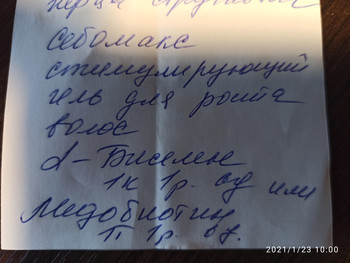 перца стручкового
Себомакс
стимулирующий
гель для роста
волос
d-Биселен
1к 1р. вд или
Медобиотин
1т 1р. вд.
2021/1/23 10:00